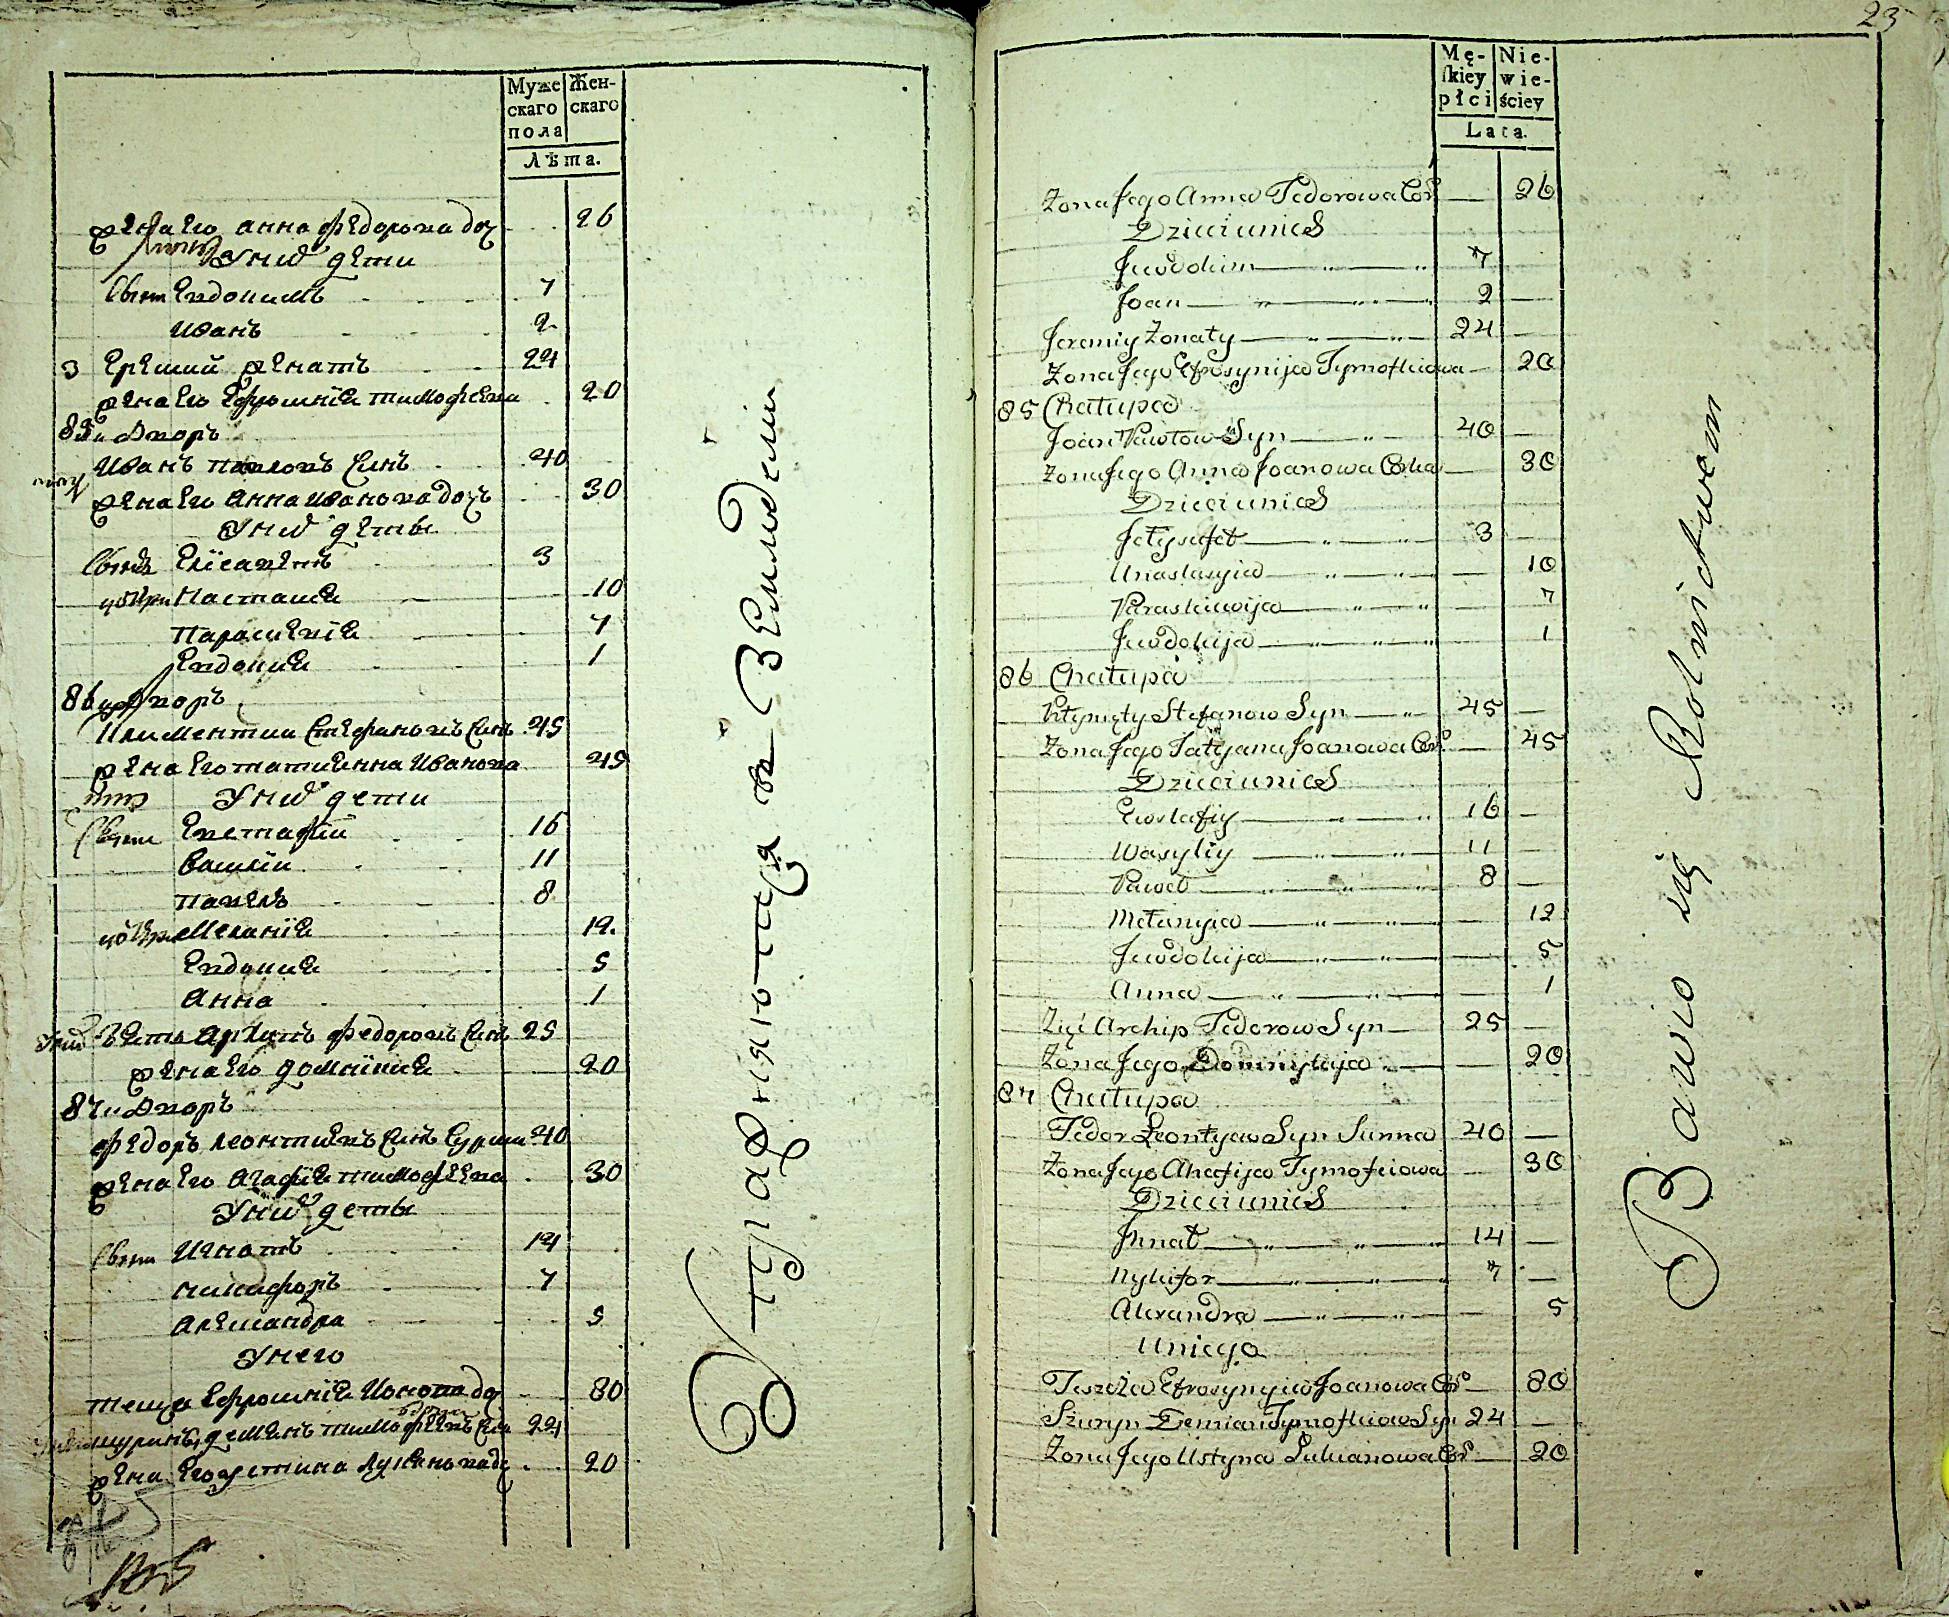 Муже
скаго
пола
Жен-
скаго
Лѣта.
жена его анна федорова доч 26
У них дети
Сыни Евдокимъ 7
иванъ 2
3 Еремий женатъ 24
жена его Ефросиніа тимофеева 20
85 и дворъ
иванъ павловъ синъ 40
жена его анна иванова доч 30
У них дети
Синъ Елісаветъ 3
дочери Настасиа 10
Парасковіа 7
Евдокиа 1
86 дворъ
Климентии Стефановъ синъ 45
жена его татианна иванова 45
У них дети
Сыни Евстафіи 16
василіи 11
павелъ 8
дочери Меланіа 12
Евдокиа 5
анна 1
У них зять архипъ федоровъ синъ 25
жена его домникиа 20
87 и дворъ
федоръ леонтиевъ синъ 40
жена его агафіа тимофеева 30
У них дети
Сыни игнатъ 14
никифоръ 7
александра 5
У него
теща Ефросиніа иванова доч 80
шуринъ демянъ тимофеевъ синъ 24
жена его устина лукянова до 20
Упражняются в Земледелии
23
Mę-
skiey
płci
Nie-
wie-
ściey
Lata.
Zona Jego Anna Fedorowa Cor 26
Dzieci unich
Jewdokim 7
Joan 2
Jeremiy Zonaty 24
Zona Jego Efrosynija Tymofiiowa 20
85 Chatupa
Joan Pawłow Syn 40
Zona Jego Anna Joanowa Corka 30
Dzieci unich
Jełysafet 3
Anastasyia 10
Paraskiewija 7
Jewdokija 1
86 Chatupa
Kłymęty Stefanow Syn 45
Zona Jego Tatyana Joanowa Cor 45
Dzieci unich
Ewstafiy 16
Wasyliy 11
Paweł 8
Mełanyia 12
Jewdokija 5
Anna 1
Zięć Archip Fedorow Syn 25
Zona Jego Dominykija 20
87 Chatupa
Fedor Leontyew Syn 40
Zona Jego Ahafija Tymofeiowa 30
Dzieci unich
Jhnat 14
Nykifor 7
Alexandra 5
Uniego
Teszcza Efrosynyia Joanowa Cor 80
Szuryn Demian Tymofiiow Syn 24
Zona Jego Ustyna Łukianowa Cor 20
Bawio się Rolnictwem